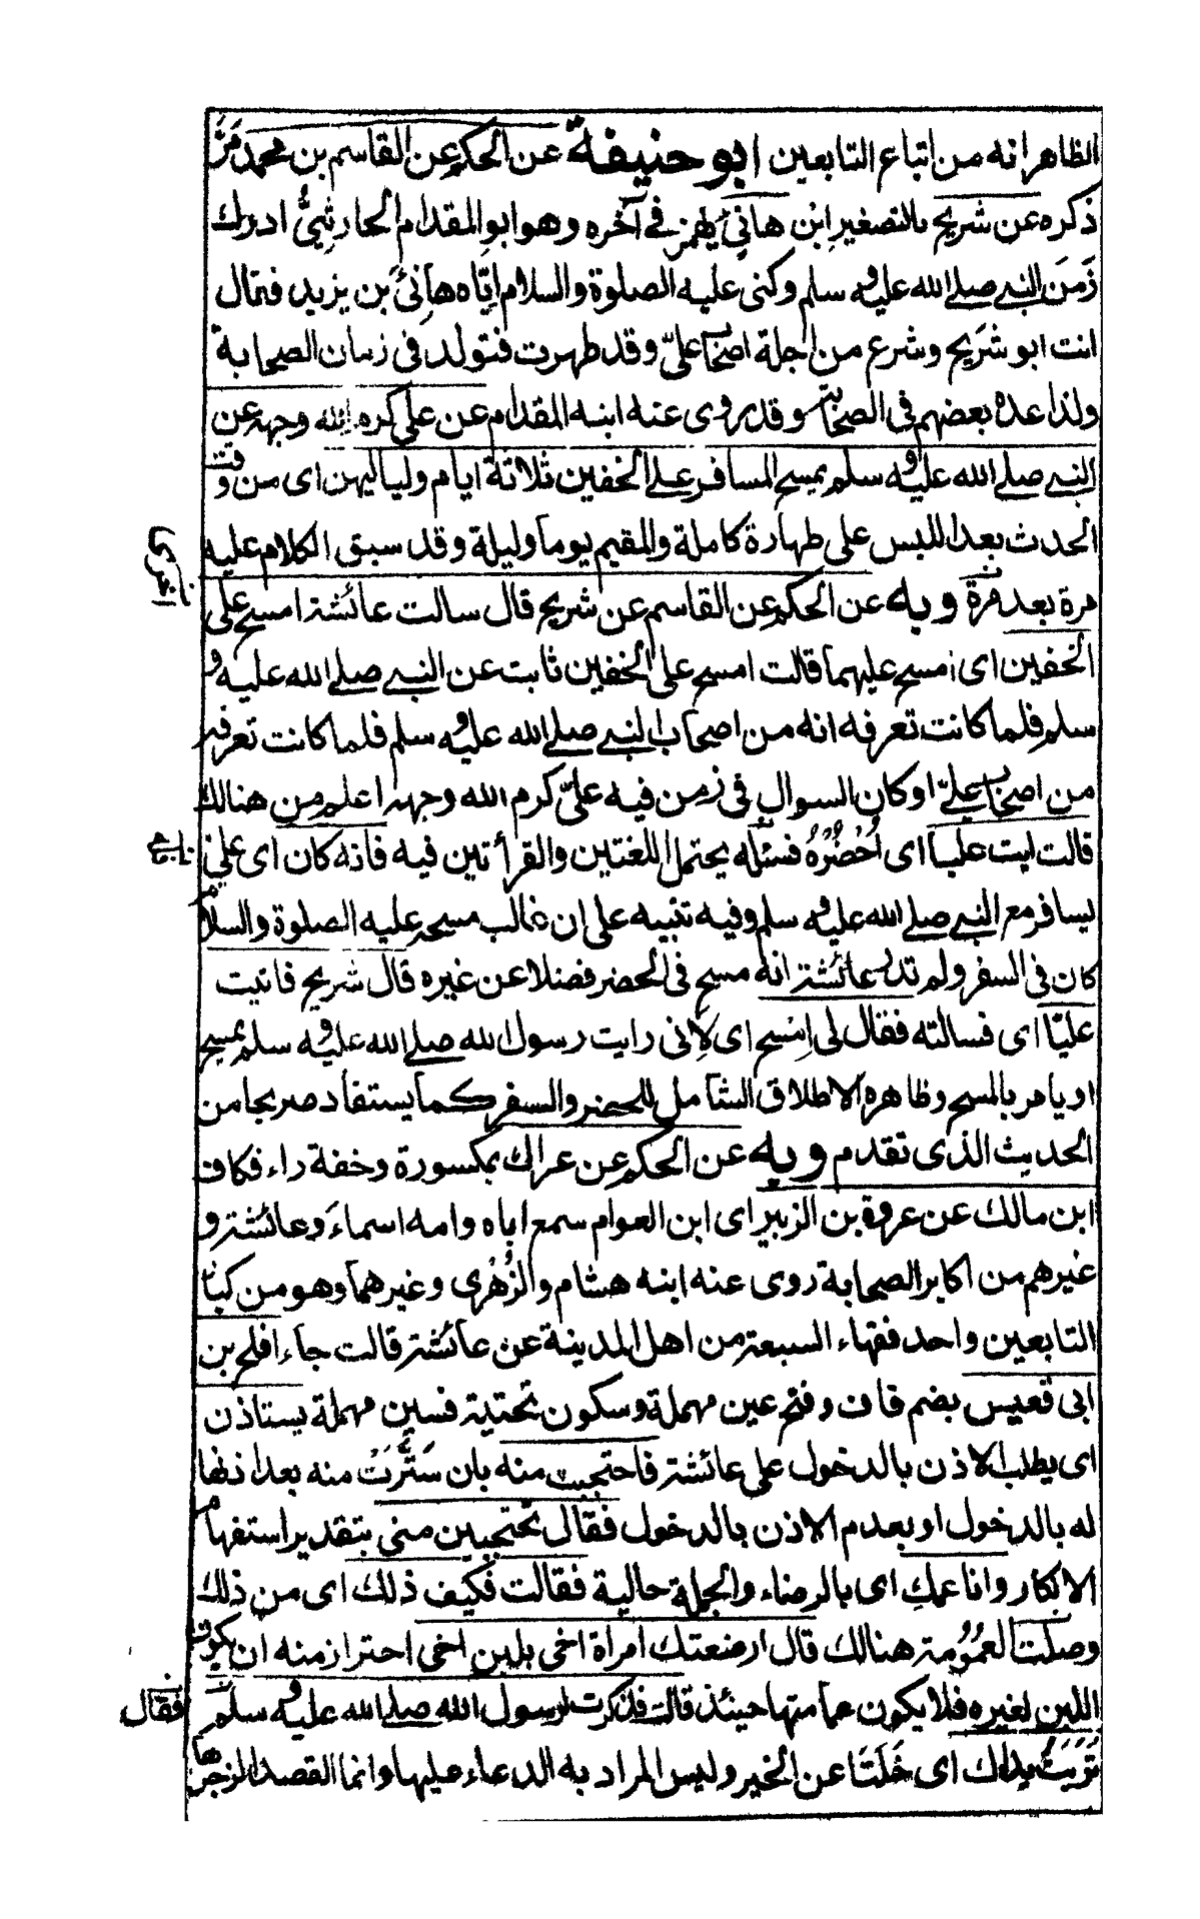 الظاهر انه من اتباع التابعين ابو حنيفة عن الحكم عن القاسم بن محمد مَرَّ
ذكره عن شريح بالتصغير ابن هانئ بهمز في آخره وهو ابو المقدام الحارثيُّ ادرك
زَمَنَ النبي صلى الله عليه و سلم وكنى عليه الصلوة والسلام ايّاه هانئ بن يزيد فقال
انت ابو شريح وشرع من اجلة اصحاب علىّ وقد ظهرت فتولد فى زمان الصحابة
ولذا عده بعضهم فى الصحابة وقد روى عنه ابنه المقدام عن على كرم الله وجهه عن
النبي صلى الله عليه و سلم يمسح المسافر على الخفين ثلاثة ايام ولياليهن اى من وقت
الحدث بعد اللبس على طهارة كاملة والمقيم يوما وليلة وقد سبق الكلام عليه
مرة بعد مرة وبه عن الحكم عن القاسم عن شريح قال سالت عائشة امسح على
الخفين اى امسح عليهما قالت امسح على الخفين ثابت عن النبي صلى الله عليه و
سلم فلما كانت تعرفه انه من اصحاب النبي صلى الله عليه و سلم فلما كانت تعرفه
من اصحاب علىّ او كان السوال فى زمن فيه علىّ كرم الله وجهه اعلم من هنالك
قالت ايت عليا اى اُحْضُرْهُ فسئله يحتمل اللغتين والقرأتين فيه فانه كان اى على
يسافر مع النبي صلى الله عليه و سلم وفيه تنبيه على ان غالب مسحه عليه الصلوة والسلام
كان فى السفر ولم تدر عائشة انه مسح فى الحضر فضلا عن غيره قال شريح فاتيت
عليّا اى فسالته فقال لى اِمْسح اى لِانى رايت رسول الله صلى الله عليه و سلم يمسح
او يامر بالمسح وظاهره الاطلاق الشامل للحضر والسفر كما يستفاد صريحا من
الحديث الذى تقدم وبه عن الحكم عن عراك بمكسورة وخفة راء فكاف
ابن مالك عن عروة بن الزبير اى ابن العوام سمع اباه وامه اسماءَ وعائشة و
غيرهم من اكابر الصحابة روى عنه ابنه هشام والزُهْرى وغيرهما وهو من كبار
التابعين واحد فقهاء السبعة من اهل المدينة عن عائشة قالت جاء افلح بن
ابى قعيس بضم قاف وفتح عين مهملة وسكون تحتية فسين مهملة يستاذن
اى يطلب الاذن بالدخول على عائشة فاحتجبت منه بان سَتَّرَتْ منه بعد اذنها
له بالدخول او بعدم الاذن بالدخول فقال تحتجبين منى بتقدير استفهام
الانكار وانا عمكِ اى بالرضاء والجملة حالية فقالت فكيف ذلك اى من ذلك
وصلت العُمُومة هنالك قال ارضعتك امرأة اخى بلبن اخى احتراز منه ان يكون
اللبن لغيره فلا يكون عما منها حينئذ قالت فذكرت لرسول الله صلى الله عليه و سلم فقال
تَرِبَتْ يداك اى خَلَتَا عن الخير وليس المراد به الدعاء عليها وانما القصد الزجرها